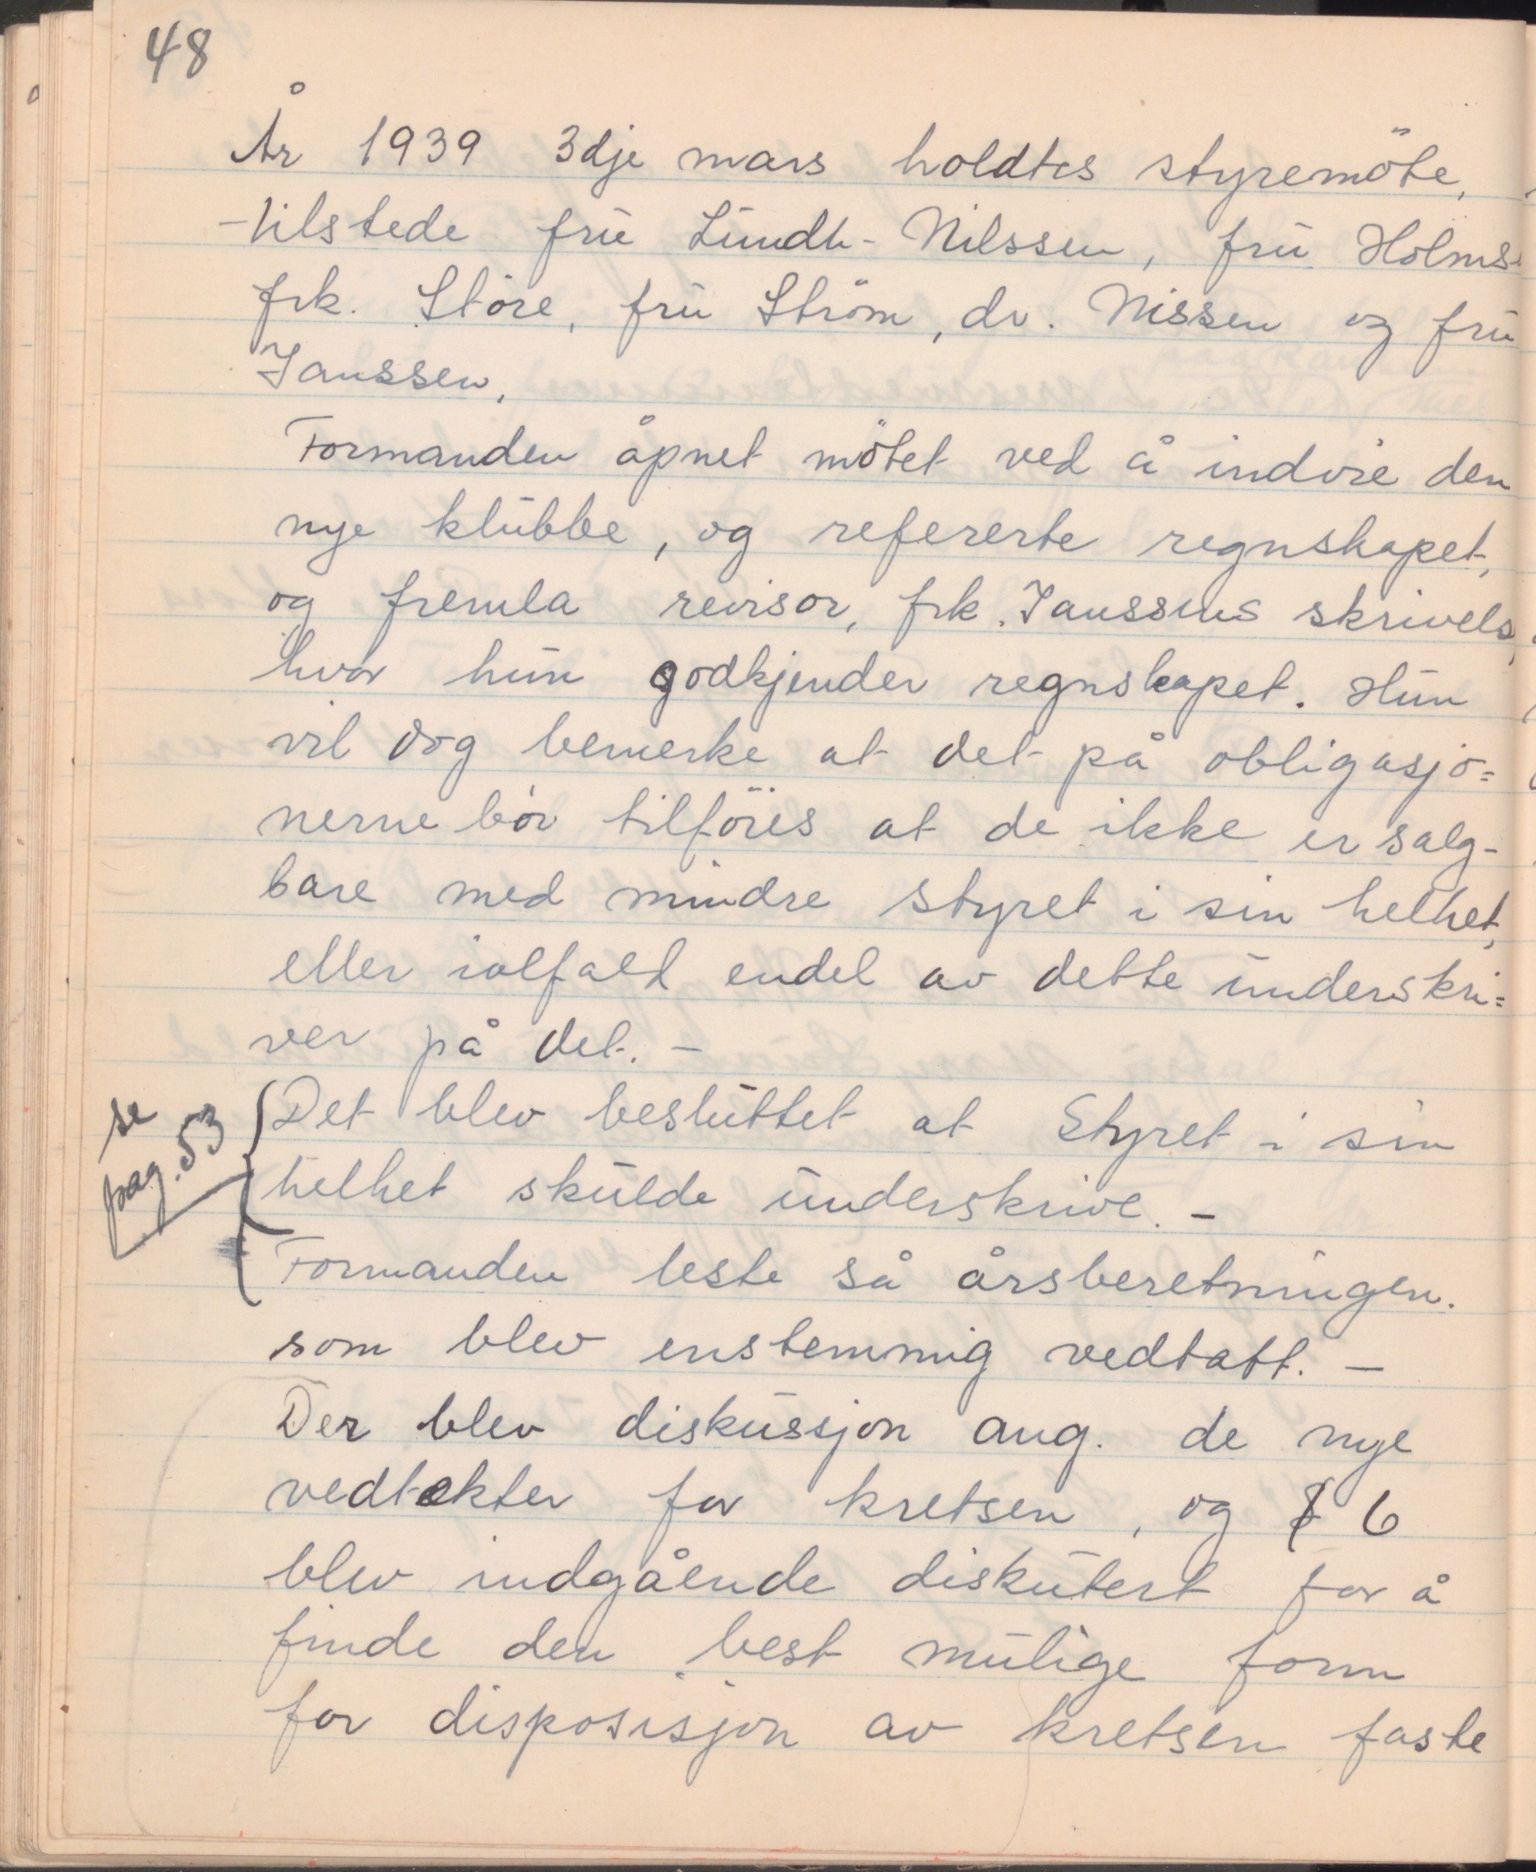 48
År 1939 3dje mars holdtes styremöte,
tilstede frü Lündh-Nilssen, frü Holms
frk. Störe, frü Ström, dr. Nissen og frü
Janssen,
Formanden åpnet mötet ved å indvie den
nye klübbe, og refererte regnskapet,
og fremla revisor, frk. Janssens skrivels
hvor hün godkjender regnskapet. Hün
vil dog bemerke at det på obligasjo=
nerne bör tilföies at de ikke er salg-
bare med mindre styret i sin helhet,
eller ialfald endel av dette ünderskri=
ver på det. –
se
pag. 53
Det blev beslüttet at Styret i sin
helhet skülde ünderskrive. –
Formanden leste så årsberetningen.
som blev enstemmig vedtatt. –
Der blev disküssjon ang. de nye
vedtekter for kretsen, og § 6
blev indgående diskütert for å
finde den best mülige form
for disposisjon av kretsen faste